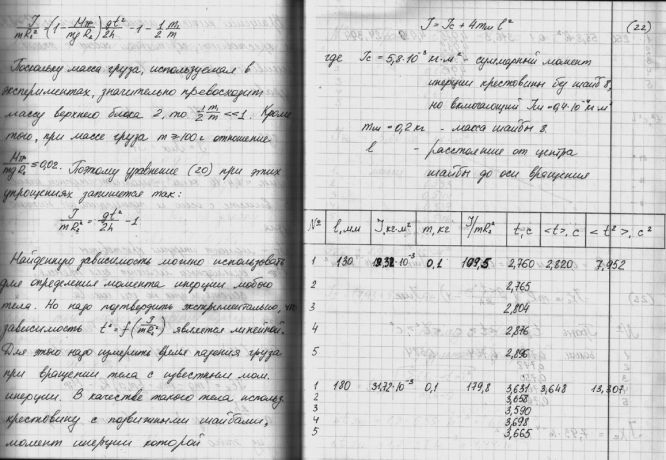 J/mR₂² = (1 - Mтр/mgR₂) gt²/2h - 1 - 1/2 m₁/m
Поскольку масса груза, используемая в
экспериментах, значительно превосходит
массу верхнего блока 2, то 1/2 m₁/m <<1. Кроме
того, при массе груза m ≥ 100 г отношение
Mтр/mgR₂ ≤ 0,02. Поэтому уравнение (20) при этих
упрощениях запишется так:
J/mR₂² = gt²/2h - 1
Найденную зависимость можно использовать
для определения момента инерции любого
тела. Но надо подтвердить экспериментально, что
зависимость t² = f(J/mR₂²) является линейной.
Для этого надо измерить время падения груза
при вращении тела с известным мом.
инерции. В качестве такого тела использ.
крестовину с подвижными шайбами,
момент инерции которой
J = Jc + 4mш l² (22)
где Jc = 5,8·10⁻³ кг·м² - суммарный момент
инерции крестовины без шайб 8,
но включающий
mш = 0,2 кг - масса шайбы 8.
l - расстояние от центра
шайбы до оси вращения
№ l, мм J, кг·м² m, кг J/mR₂² t, с <t>, с <t²>, с²
1 130 19,32·10⁻³ 0,1 109,5 2,760 2,820 7,952
2 2,765
3 2,804
4 2,876
5 2,896
1 180 31,72·10⁻³ 0,1 179,8 3,631 3,648 13,307
2 3,658
3 3,590
4 3,698
5 3,665